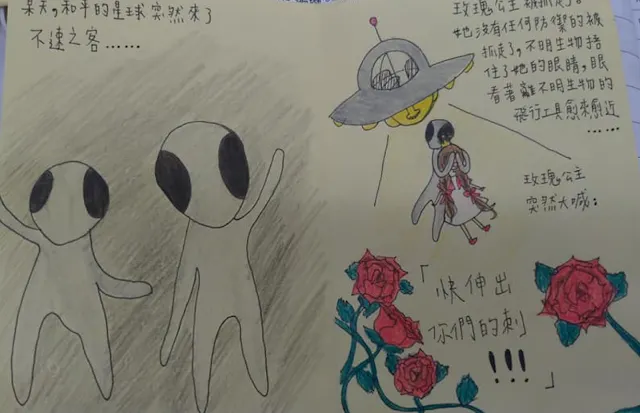 某天,和平的星球突然來了
不速之客……
玫瑰公主被抓走了。
她沒有任何防禦的被
抓走了,不明生物摀
住了她的眼睛,眼
看著離不明生物的
飛行工具愈來愈近
……
玫瑰公主
突然大喊:
「快伸出
你們的刺
!!!」